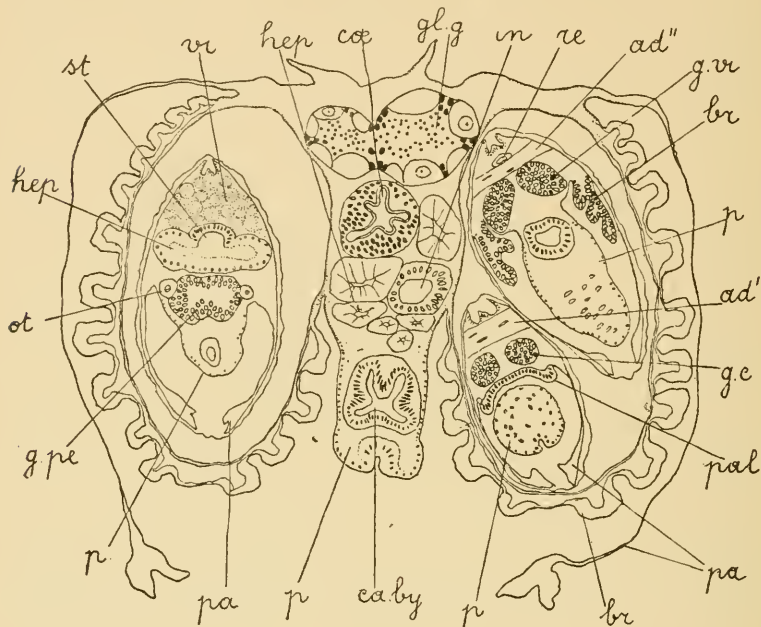 st
vi
hep
cœ
gl.g
in
re
ad"
g.vi
br
hep
p
ad'
ot
g.c
g.pe
pal
p.
pa
p
ca.by
p
br
pa